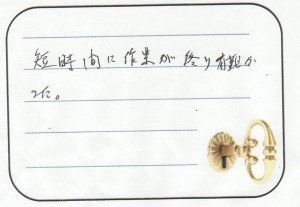 短時間に作業が終り有難か
った。